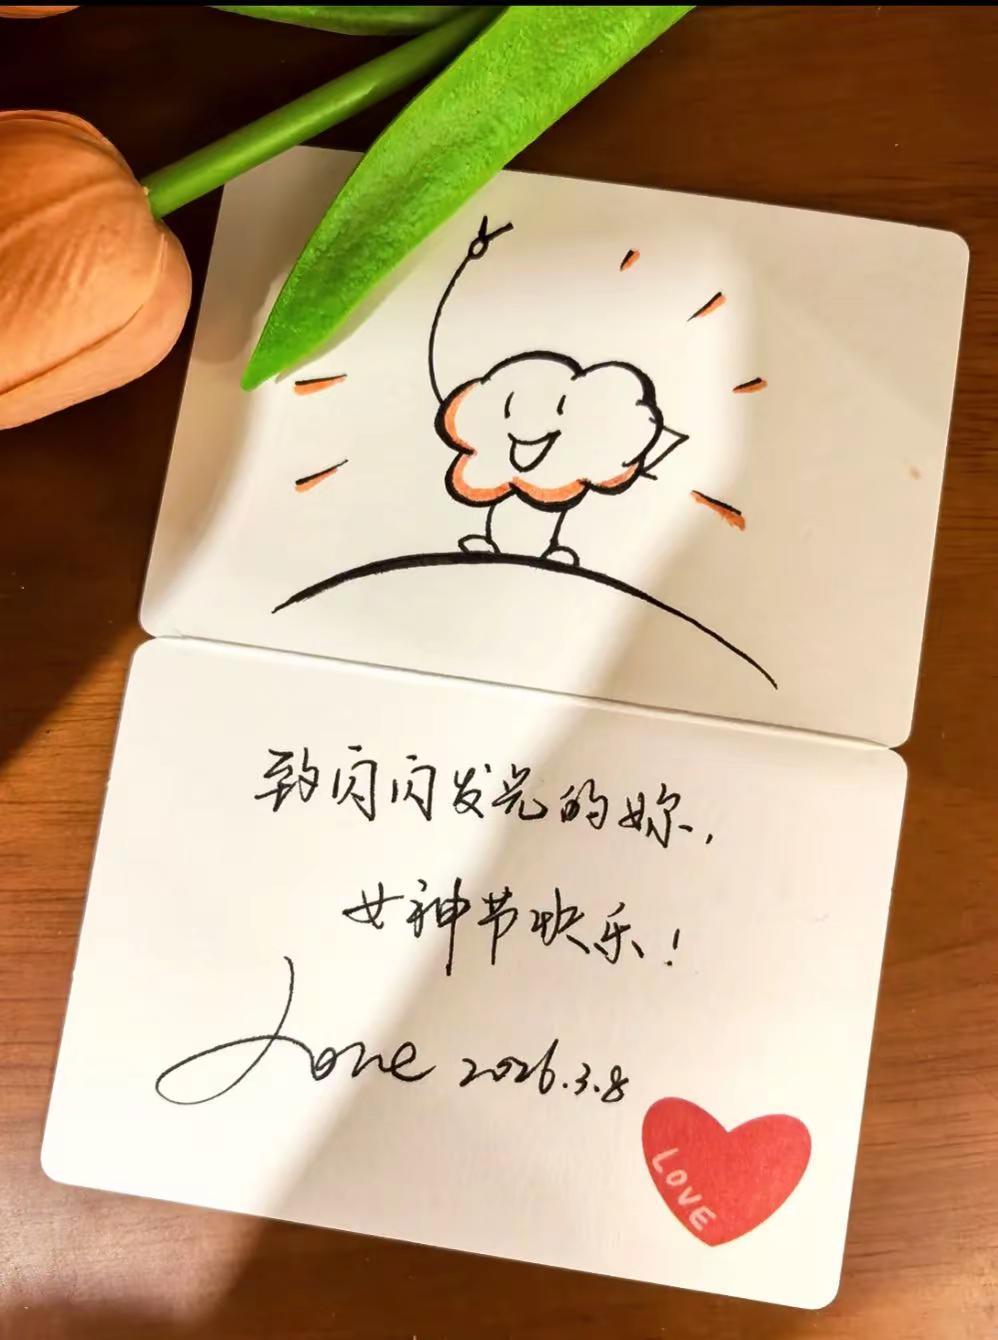 致闪闪发光的妳，
女神节快乐！
Jone 2026.3.8
LOVE